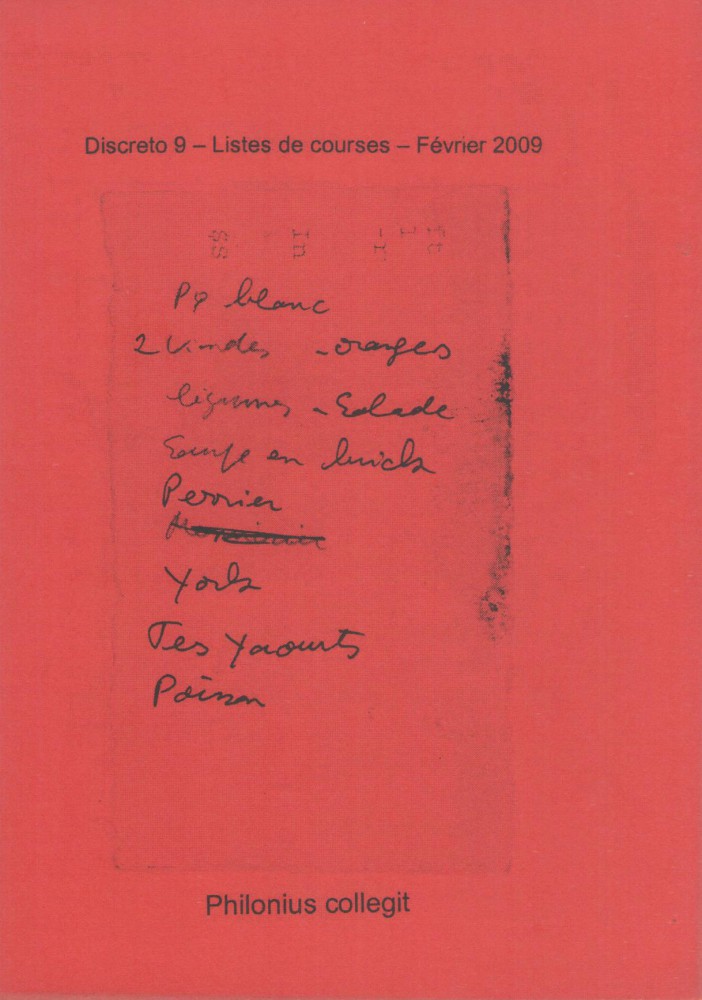 Discreto 9 – Listes de courses – Février 2009
blanc
2 Viandes - oranges
légumes - Salade
Soupe en brick
Perrier
York
Tes Yaourts
Poisson
Philonius collegit